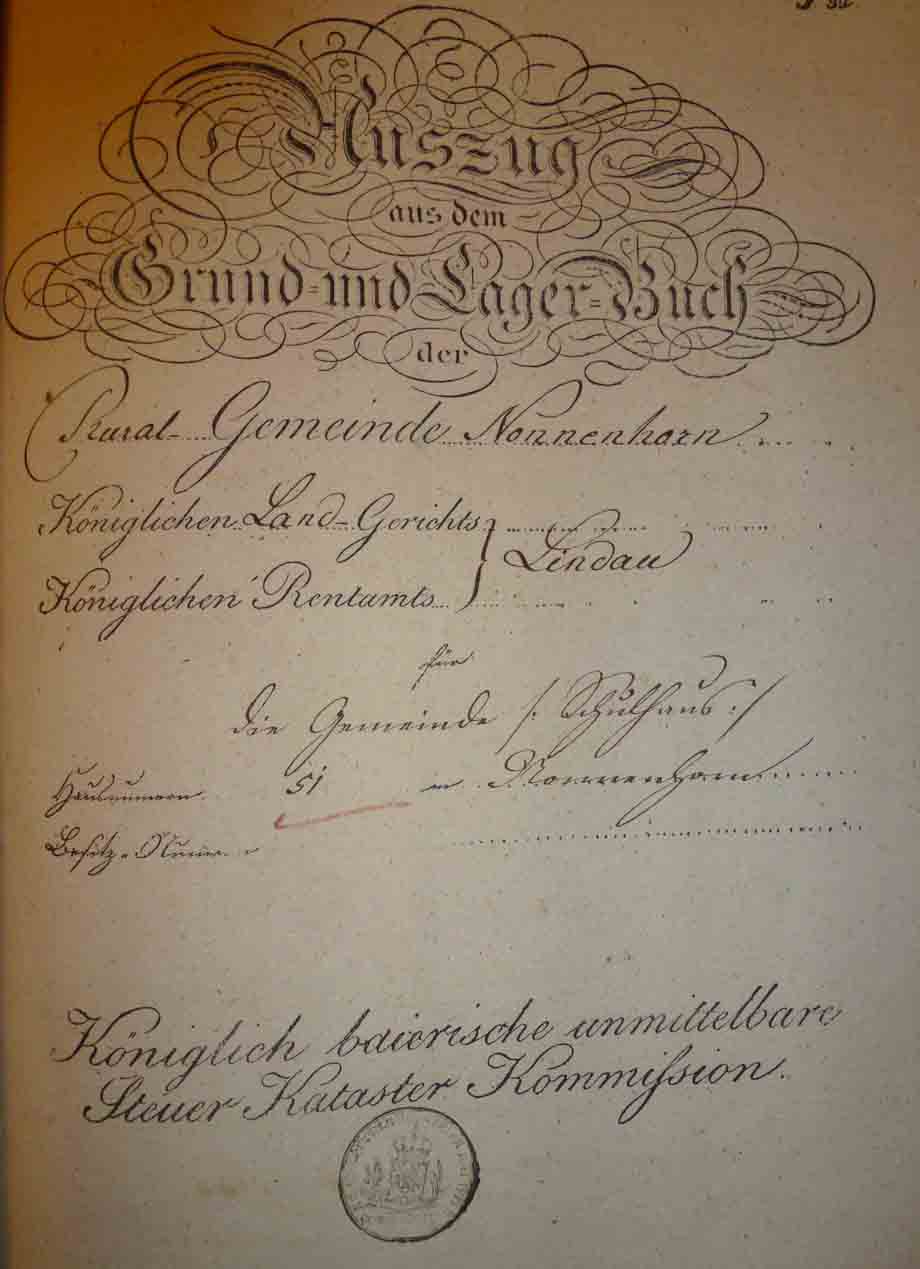 Auszug
aus dem
Grund- und Lager-Buch
der
Rural-Gemeinde Nonnenhorn
Königlichen Land-Gerichts
Lindau
Königlichen Rentamts
für
die Gemeinde /: Schulhaus :/
Hausnumern 51 in Nonnenhorn
Besitz-Numer
Königlich baierische unmittelbare
Steuer Kataster Kommission.